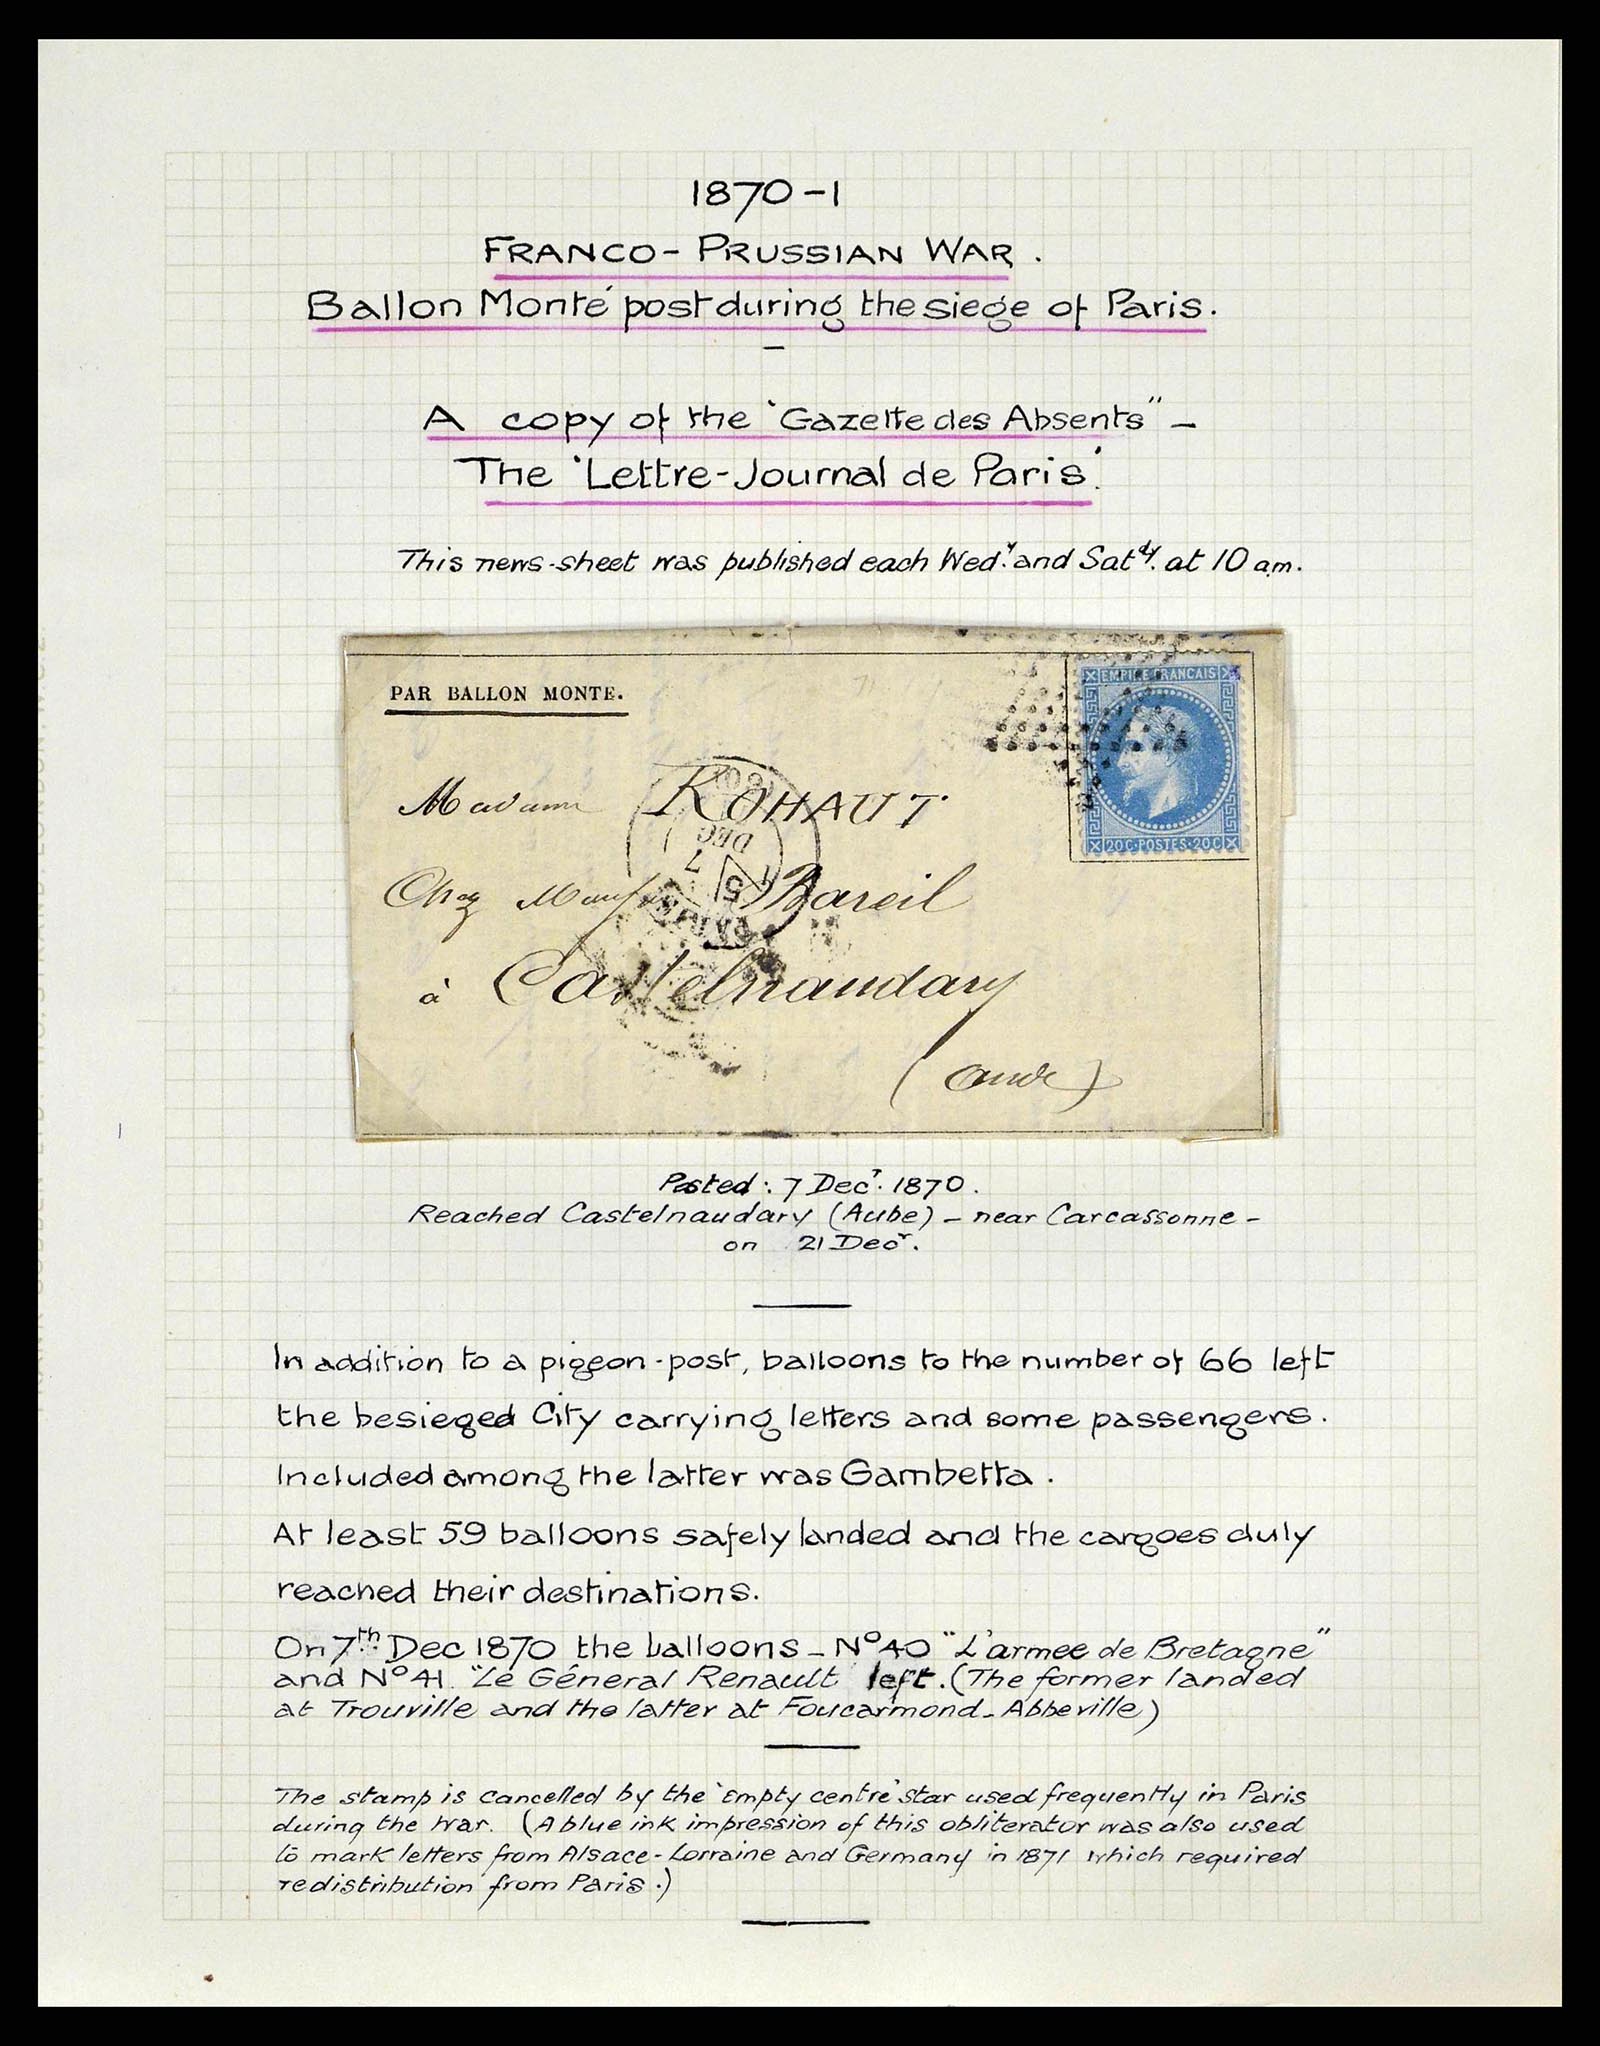 1870-1
FRANCO-PRUSSIAN WAR.
Ballon Monté post during the siege of Paris.
A copy of the "Gazette des Absents" -
The 'Lettre-Journal de Paris'.
This news-sheet was published each Wedy. and Satdy. at 10 a.m.
PAR BALLON MONTÉ.
EMPIRE FRANCAIS
Madame ROHAUT
DEC
7
5
Chez Bareil
à Castelnaudary
(Aude)
20C·POSTES·20C
Posted: 7 Decr. 1870.
Reached Castelnaudary (Aube) - near Carcassonne -
on 21 Decr.
In addition to a pigeon-post, balloons to the number of 66 left
the besieged City carrying letters and some passengers.
Included among the latter was Gambetta.
At least 59 balloons safely landed and the cargoes duly
reached their destinations.
On 7th Dec 1870 the balloons - No 40 "L'armee de Bretagne"
and No 41. "Le Géneral Renault left. (The former landed
at Trouville and the latter at Foucarmond-Abbeville)
The stamp is cancelled by the 'Empty centre' star used frequently in Paris
during the War. (A blue ink impression of this obliterator was also used
to mark letters from Alsace-Lorraine and Germany in 1871 which required
redistribution from Paris.)